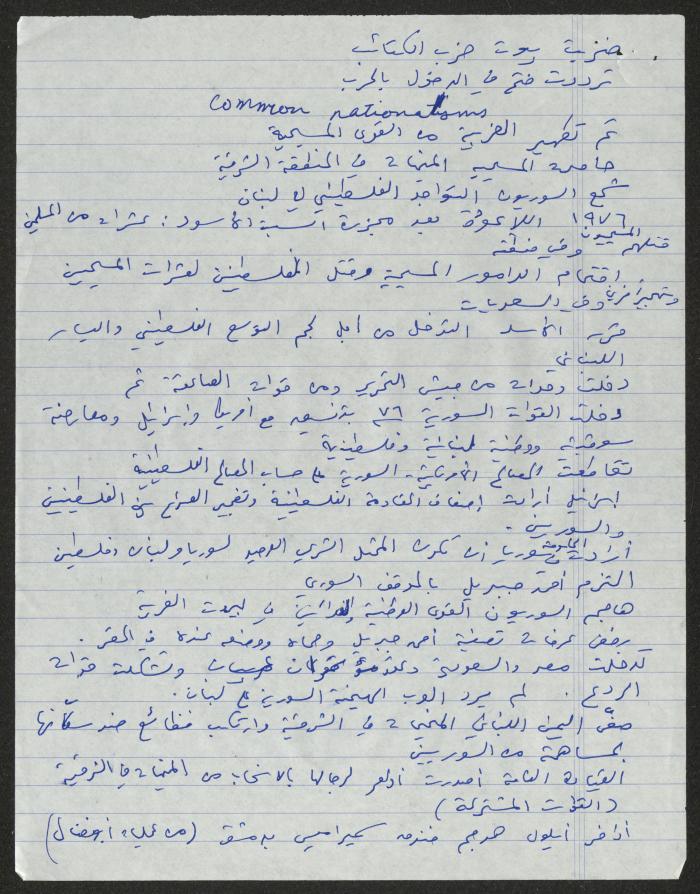 ضربت بيوت حزب الكتائب
ترددت فتح في الدخول بالحرب
common nationalisms
تم تطهير الغربية من القوى المسيحية
حاصرت المسيحية المخيمات في المنطقة الشرقية
شجع السوريون التواجد الفلسطيني في لبنان
١٩٧٦ اللاعودة بعد مجزرة السبت الأسود: عشرات من المسلمين
قتلهم المسيحيون وفي ضبيه
اقتحام الدامور المسيحية وقتل الفلسطينيين لعشرات المسيحيين
وتهجير آخرين وفي السعديات
قرر الأسد التدخل من أجل لجم التوسع الفلسطيني واليسار
اللبناني
دخلت وحدات من جيش التحرير ومن قوات الصاعقة ثم
دخلت القوات السورية ٧٦ بتنسيق مع أمريكا وإسرائيل ومعارضة
سوفيتية ووطنية لبنانية وفلسطينية
تقاطعت المصالح الأمريكية السورية على حساب المصالح الفلسطينية
إسرائيل أرادت إضعاف القيادة الفلسطينية وتفجير الصراع بين الفلسطينيين
والسوريين.
أرادت سوريا أن تكون الممثل الشرعي الوحيد لسوريا ولبنان وفلسطين
التزم أحمد جبريل بالموقف السوري
هاجم السوريون القوى الوطنية في بيروت الغربية
رفض عرفات تصفية أحمد جبريل وحماه ووضعه عنده في المقر.
تدخلت مصر والسعودية وتشكلت قوات
الردع. لم يرد العرب الهيمنة السورية على لبنان.
صفّى اليمين اللبناني المخيمات في الشرقية وارتكب فظائع ضد سكانها
بمساهمة من السوريين
القيادة العامة أصدرت أوامر لرجالها بالانسحاب من المخيمات في الشرقية
(القوات المشتركة)
أواخر أيلول هوجم فندق سميراميس بدمشق (من عملية أبو نضال)